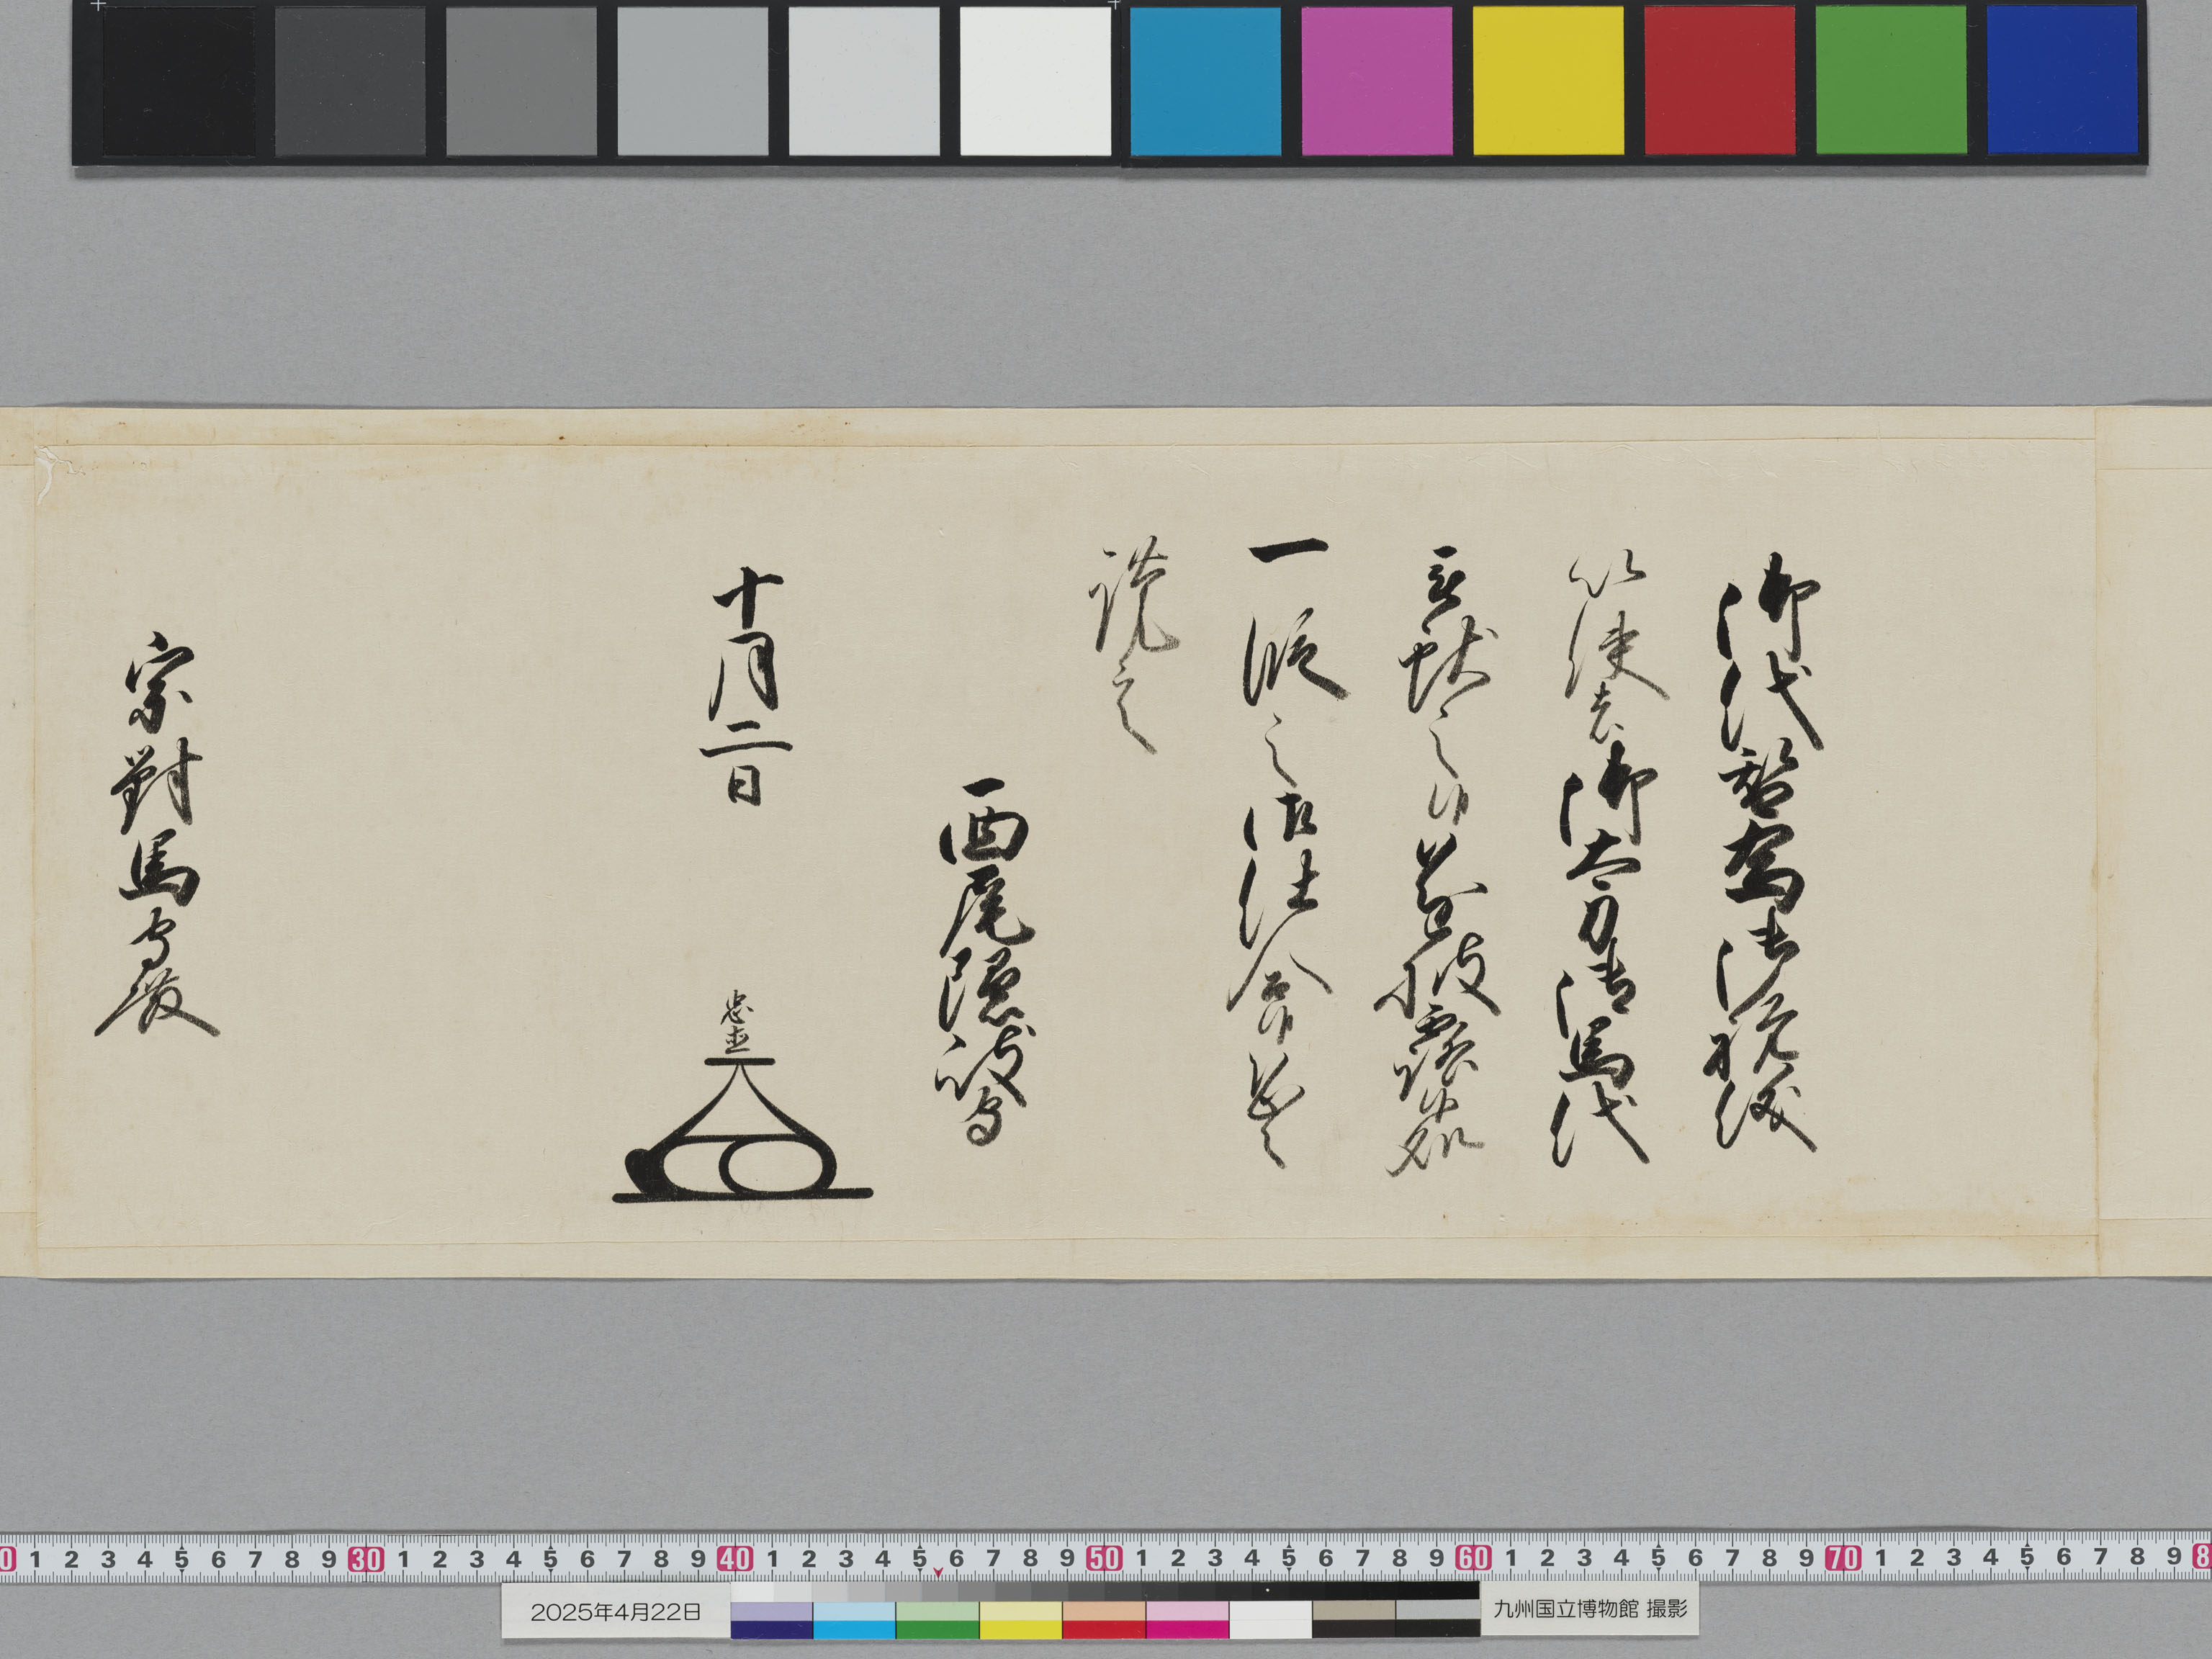 御代替為御祝儀
以使者御太刀御馬代
被献之候遂披露候處
一段之御仕合候恐々
謹言
西尾隠岐守
十月二日
忠尚
宗對馬守殿
2025年4月22日
九州国立博物館 撮影
0 1 2 3 4 5 6 7 8 9 30 1 2 3 4 5 6 7 8 9 40 1 2 3 4 5 6 7 8 9 50 1 2 3 4 5 6 7 8 9 60 1 2 3 4 5 6 7 8 9 70 1 2 3 4 5 6 7 8 9 8